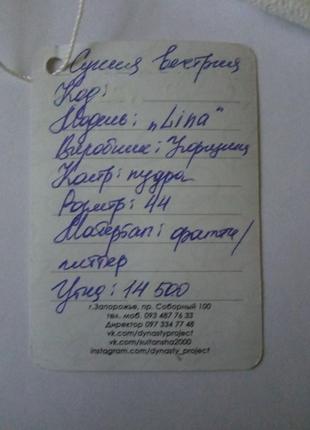 Сукня вектрия
Код:
Модель: „Lina"
Виробник: Україна
Колір: пудра
Розмір: 44
Матеріал: фатин/
глиттер
Ціна: 14 500
г.Запорожье, пр. Соборный 100
тел. моб. 093 487 76 33
Директор 097 334 77 48
vk.com/dynastyproject
vk.com/sultansha2000
instagram.com/dynasty_project